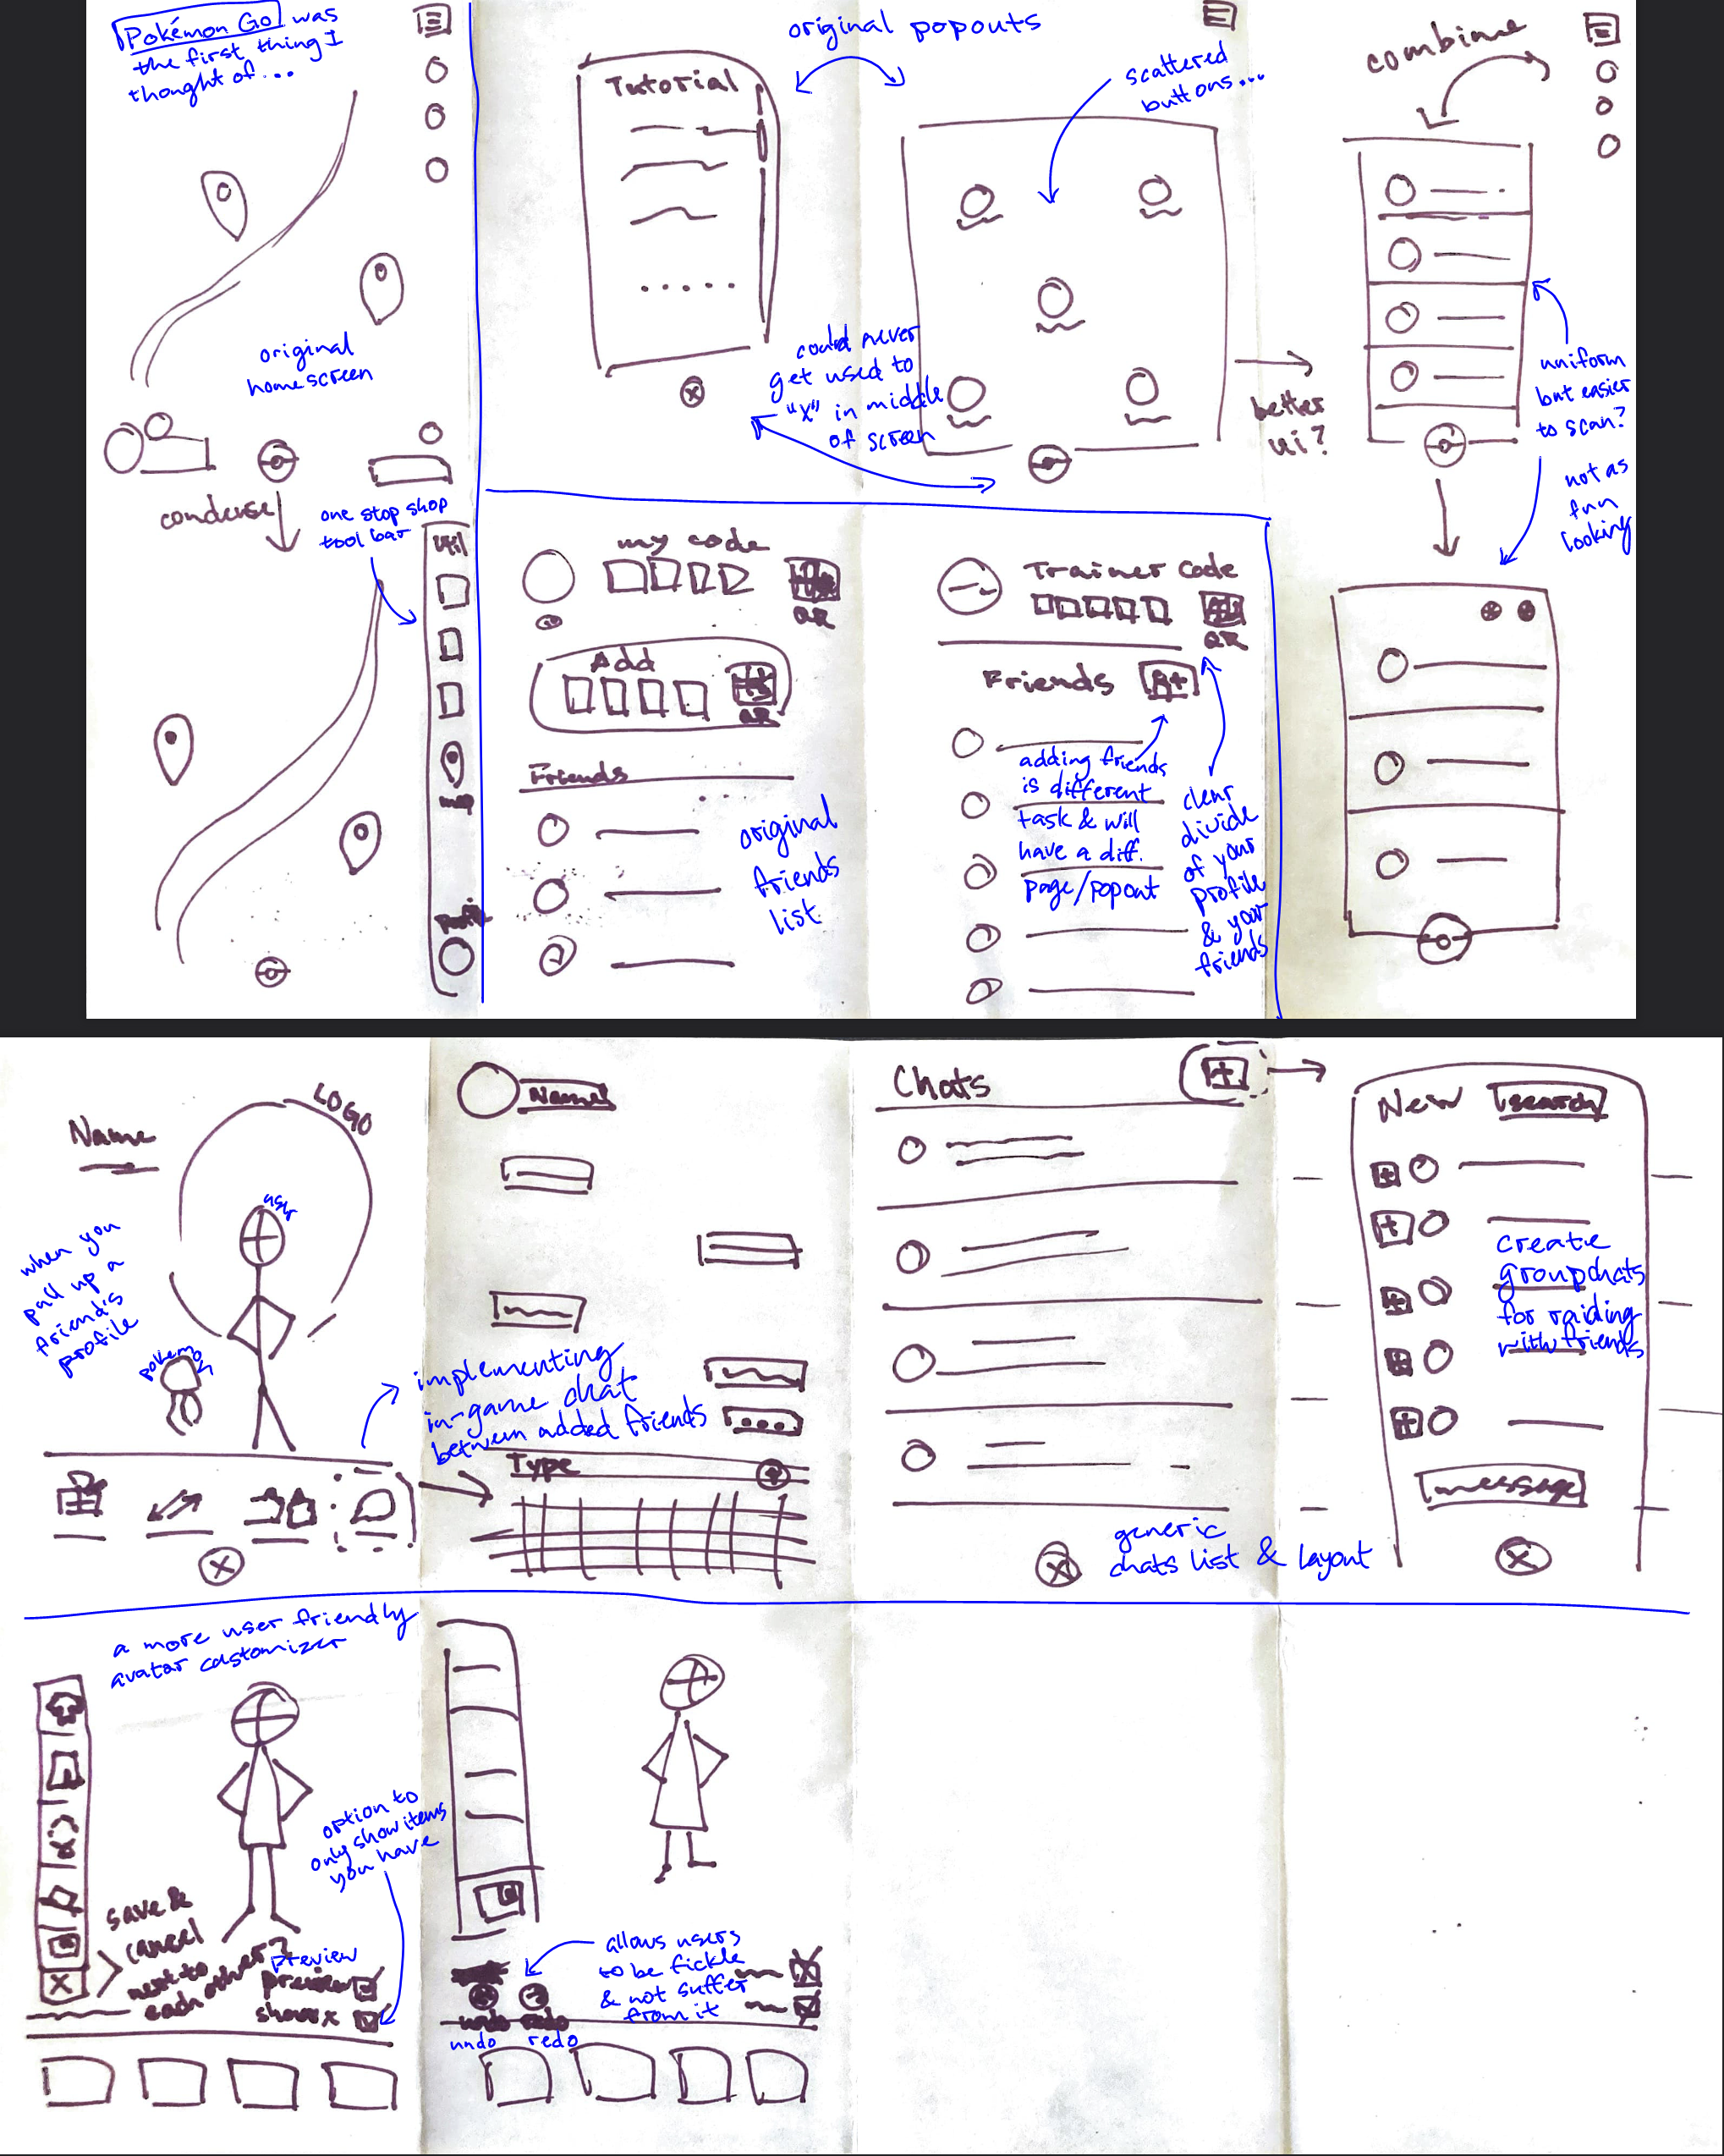 Pokémon Go! was
the first thing I
thought of...
original
homescreen
condense
one stop shop
tool bar
util
map
original popouts
Tutorial
scattered
buttons...
could never
get used to
"x" in middle
of screen
better
ui?
combine
uniform
but easier
to scan?
not as
fun
looking
my code
QR
Add
QR
Friends
original
friends
list
Trainer Code
QR
Friends
adding friends
is different
task & will
have a diff.
page/popout
clear
divide
of your
profile
& your
friends
Name
LOGO
when you
pull up a
friend's
profile
pokemon
implementing
in-game chat
between added friends
Name
Type
Chats
generic
chats list & layout
New
search
create
groupchats
for raiding
with friends
message
a more user friendly
avatar customizer
option to
only show items
you have
save &
cancel
next to
each other?
preview
preview
allows users
to be fickle
& not suffer
from it
undo redo
undo redo